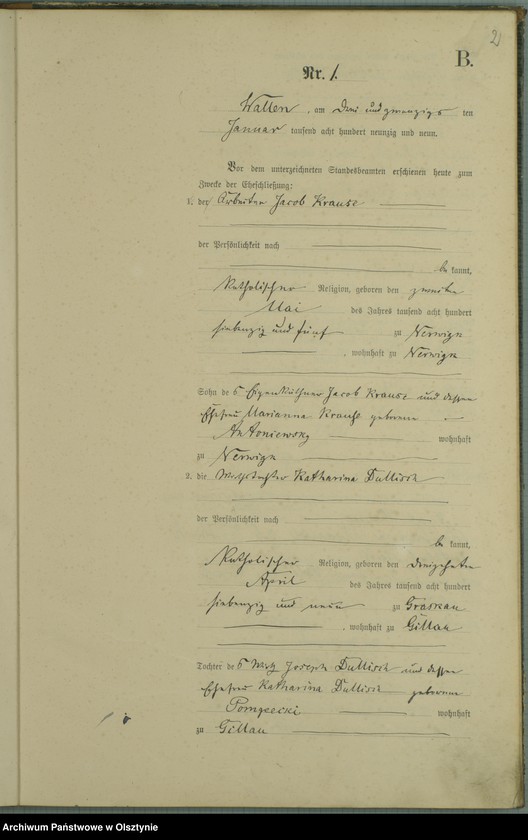 2
B.
Nr. 1.
Wallen, am drei und zwanzigs ten
Januar tausend acht hundert neunzig und neun.
Vor dem unterzeichneten Standesbeamten erschienen heute zum
Zwecke der Eheschließung:
1. der Arbeiter Jacob Krause
der Persönlichkeit nach
be kannt,
katholischer Religion, geboren den zweiten
Mai des Jahres tausend acht hundert
siebenzig und fünf zu Nerwigk
, wohnhaft zu Nerwigk
Sohn des Eigenkäthner Jacob Krause und dessen
Ehefrau Marianna Krause geborene
Antoniewsky wohnhaft
zu Nerwigk
2. die Wirthstochter Katharina Dullisch
der Persönlichkeit nach
be kannt,
katholischer Religion, geboren den dreizehnten
April des Jahres tausend acht hundert
siebenzig und neun zu Graskau
, wohnhaft zu Gillau
Tochter des Wirth Joseph Dullisch und dessen
Ehefrau Katharina Dullisch geborene
wohnhaft
zu Gillau
Archiwum Państwowe w Olsztynie